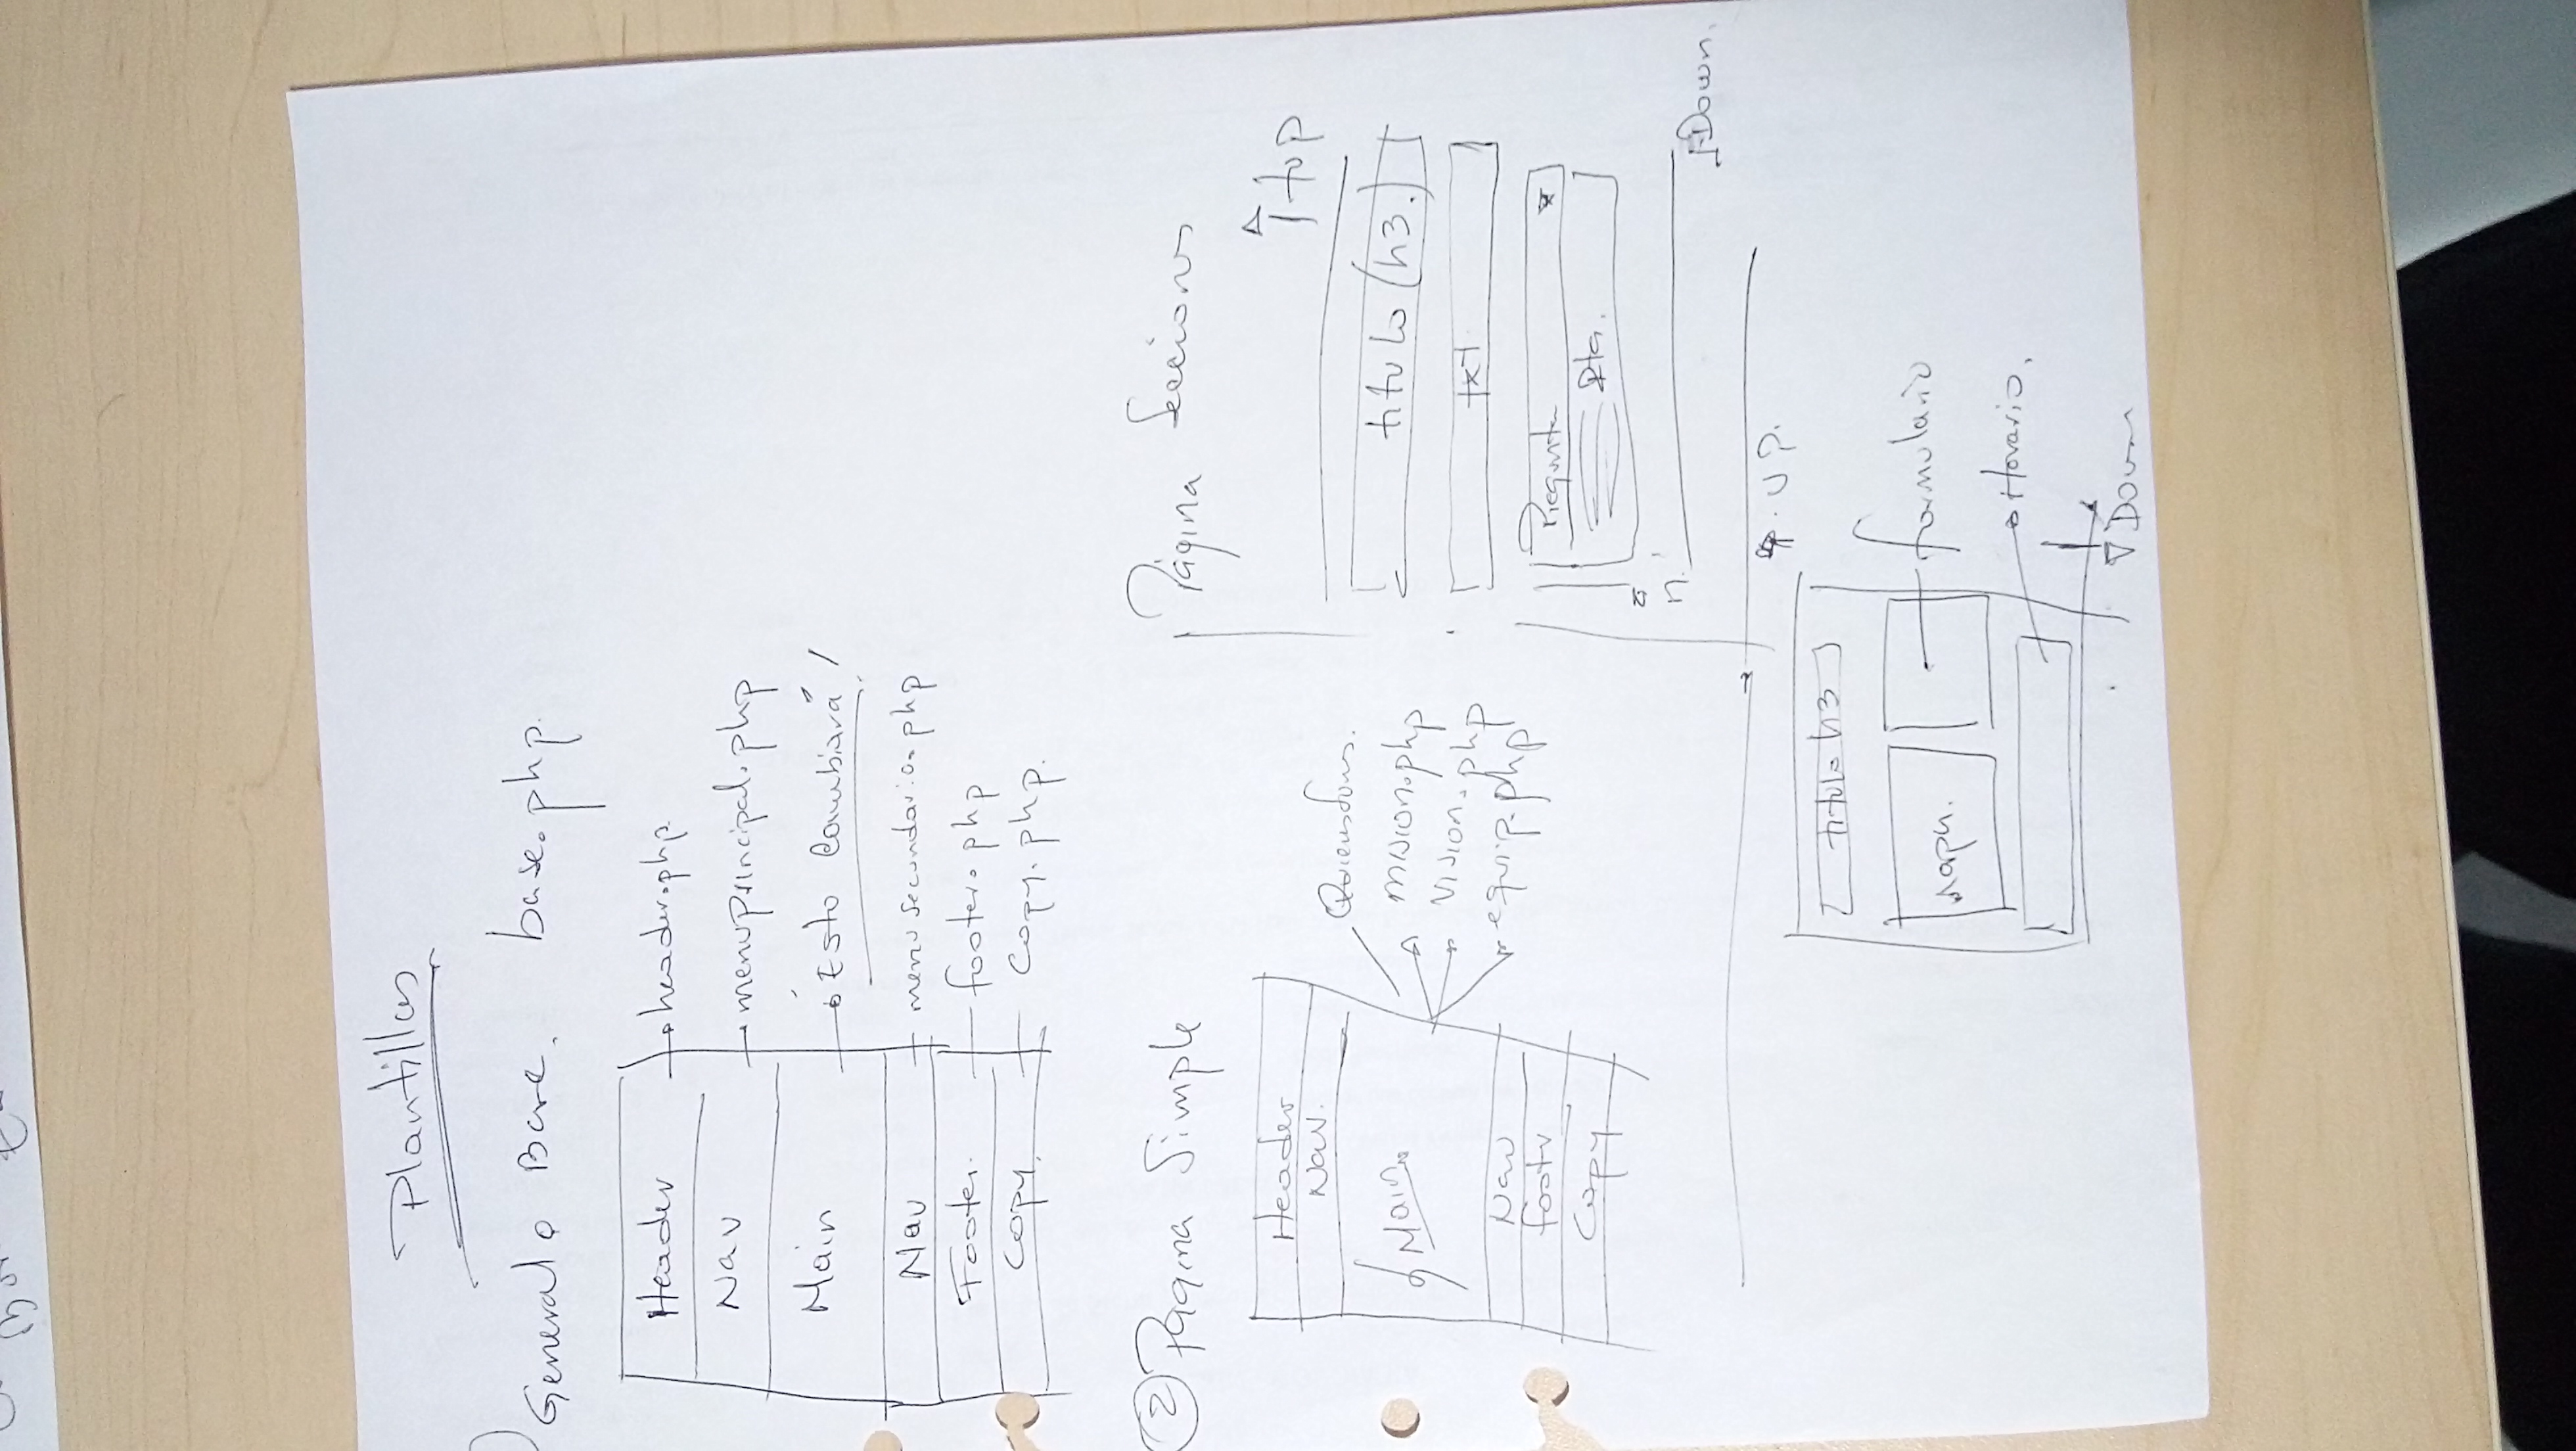 Plantillas
General o Base. base.php.
Header header.php.
Nav menuprincipal.php
Main ¡Esto Cambiará!
Nav menu secundario.php
Footer. footer.php
Copy. Copy.php.
② Pagina Simple
Header
Nav.
Main.
Nav
footer
Copy
mision.php
Vision.php
equip.php
Página Secciones
↑ top
titulo (h3.)
txt
Pregunta
Rta.
n.
↓ Down.
UP.
titulo h3
mapa.
formulario
Horario.
Down